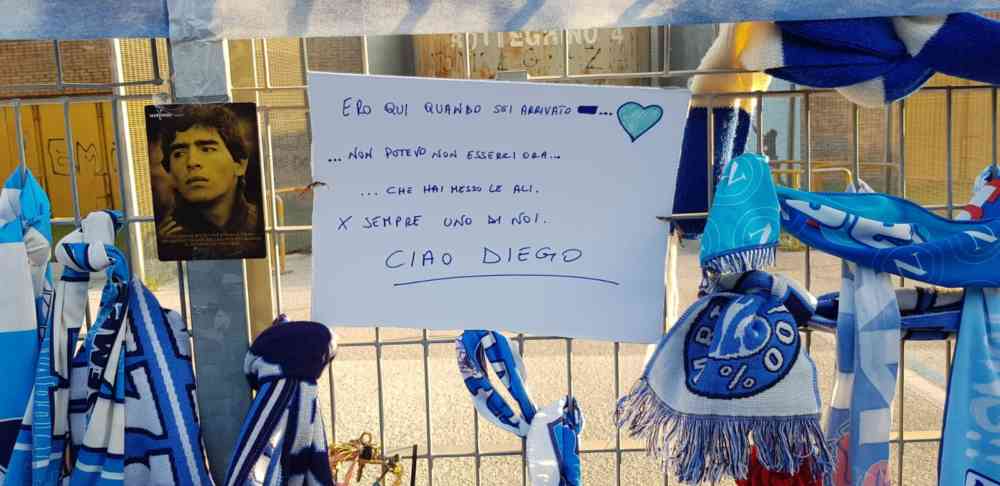 ERO QUI QUANDO SEI ARRIVATO ...
... NON POTEVO NON ESSERCI ORA...
... CHE HAI MESSO LE ALI.
X SEMPRE UNO DI NOI.
CIAO DIEGO
N
N
N